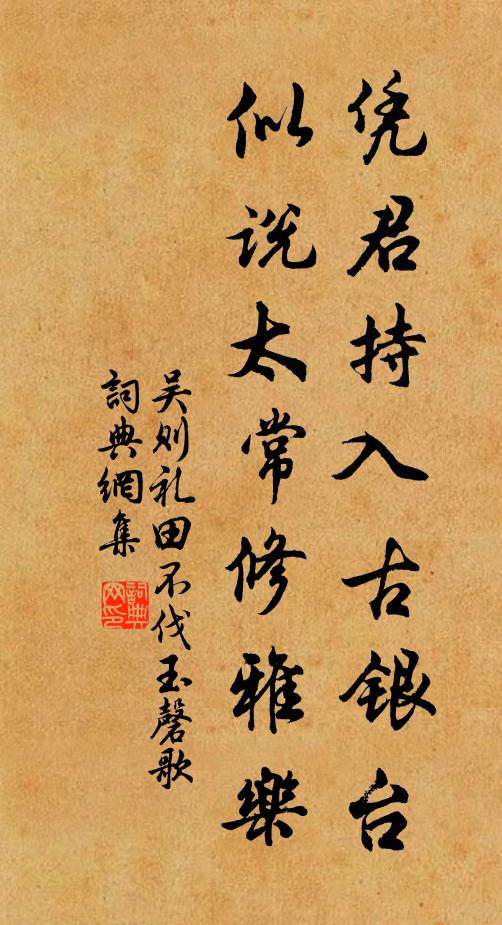 凭君持入古银台
似说太常修雅樂
吴则礼田不伐玉磬歌
詞典網集
詞典网印